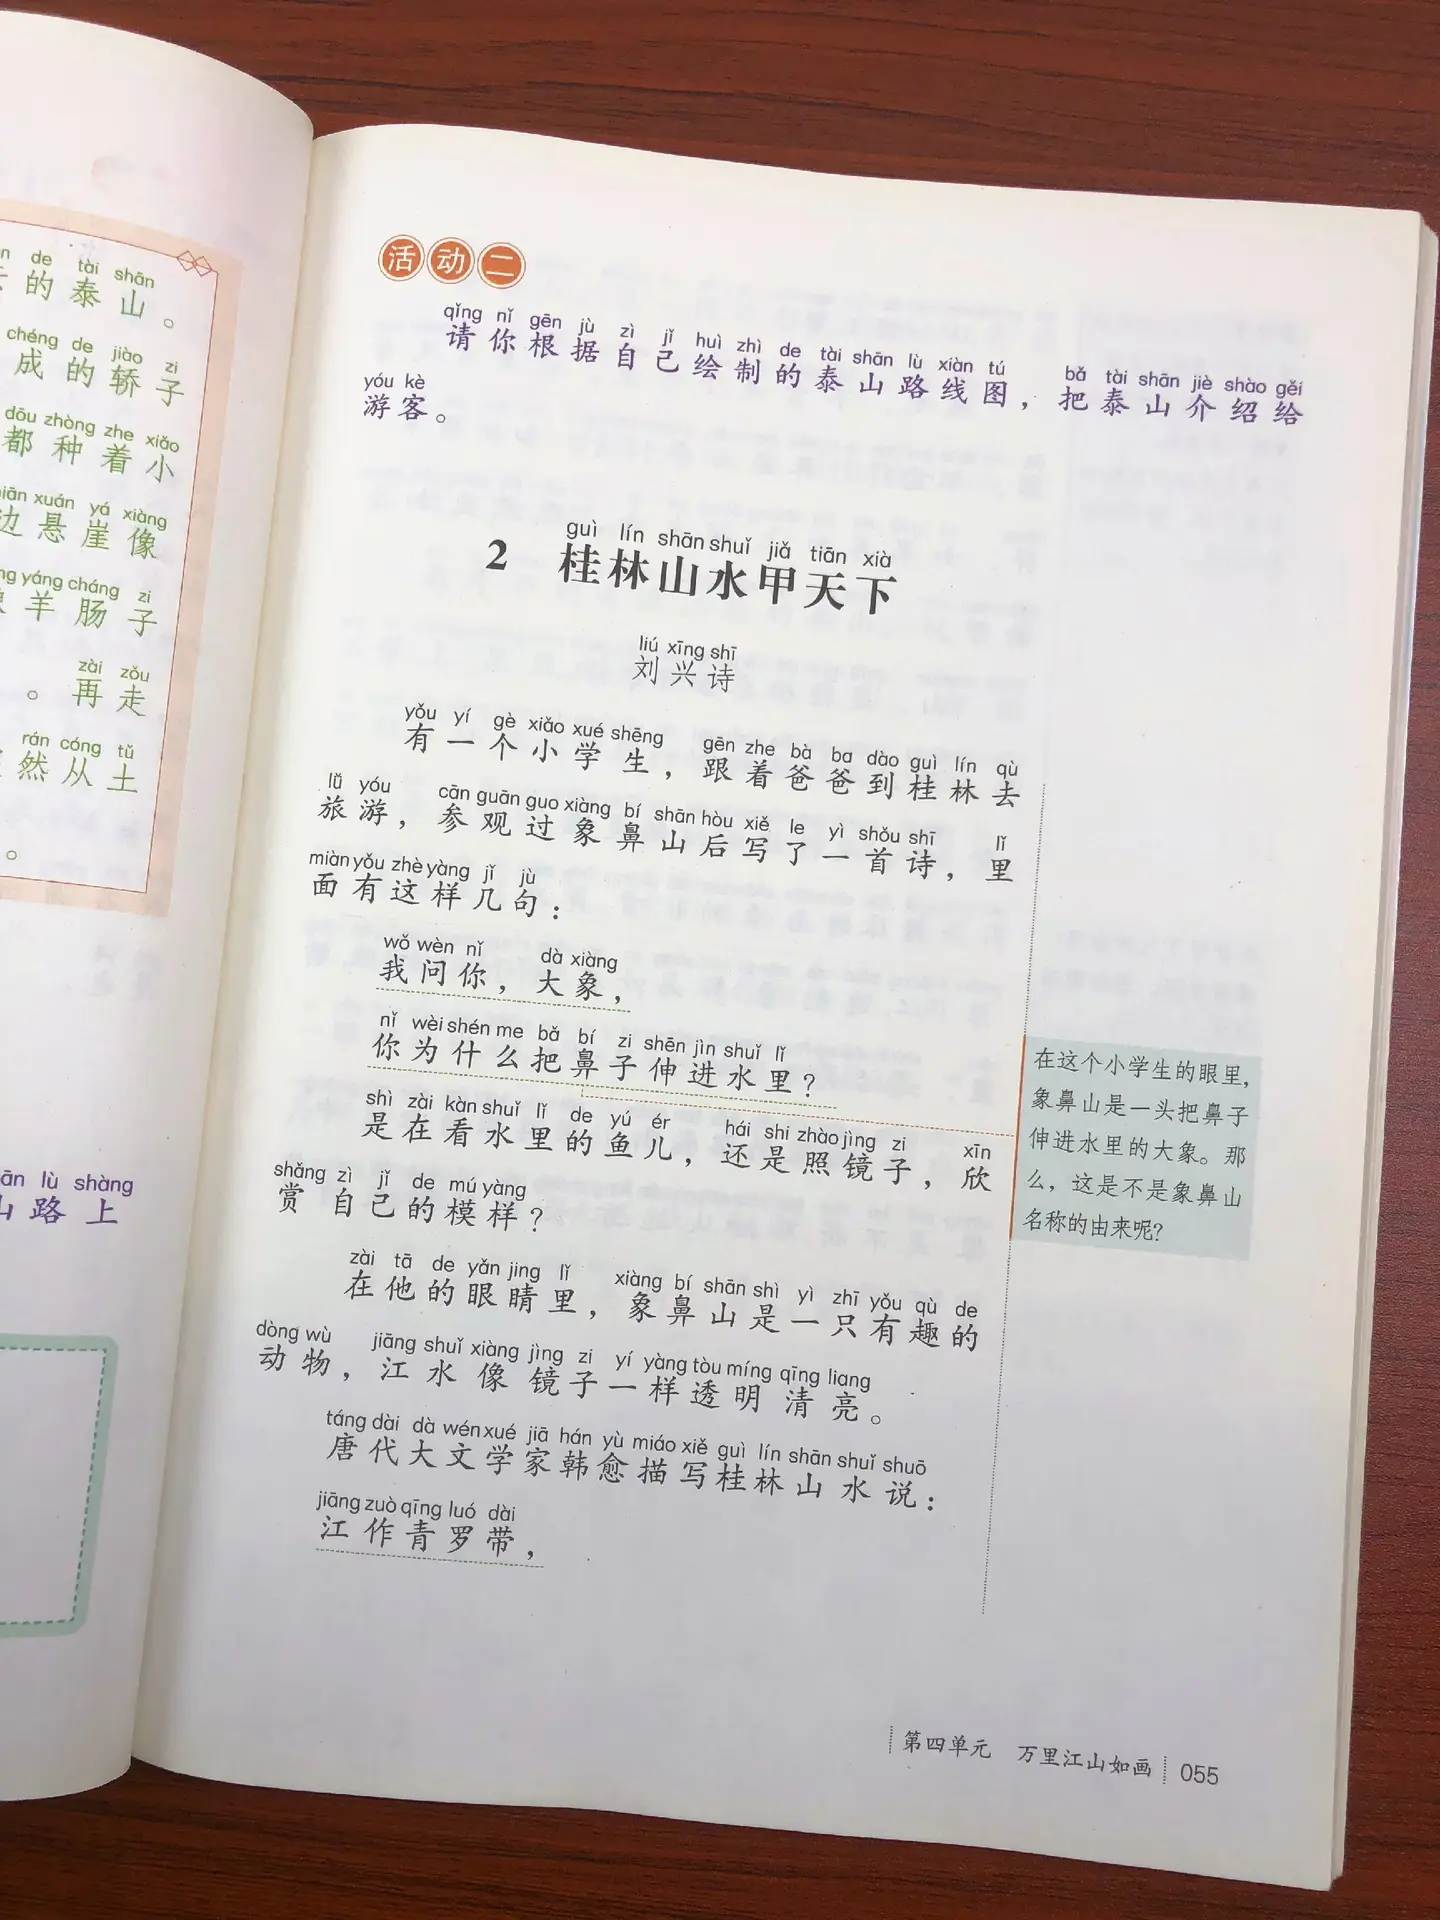 de tài shān
的泰山。
chéng de jiào zi
成的轿子
dōu zhòng zhe xiǎo
都种着小
xuán yá xiàng
边悬崖像
yáng cháng zi
羊肠子
zài zǒu
。再走
rán cóng tǔ
然从土
。
lù shàng
山路上
活动二
qǐng nǐ gēn jù zì jǐ huì zhì de tài shān lù xiàn tú bǎ tài shān jiè shào gěi
请你根据自己绘制的泰山路线图，把泰山介绍给
yóu kè
游客。
guì lín shān shuǐ jiǎ tiān xià
2 桂林山水甲天下
liú xīng shī
刘兴诗
yǒu yí gè xiǎo xué shēng gēn zhe bà ba dào guì lín qù
有一个小学生，跟着爸爸到桂林去
lǚ yóu cān guān guo xiàng bí shān hòu xiě le yì shǒu shī lǐ
旅游，参观过象鼻山后写了一首诗，里
miàn yǒu zhè yàng jǐ jù
面有这样几句：
wǒ wèn nǐ dà xiàng
我问你，大象，
nǐ wèi shén me bǎ bí zi shēn jìn shuǐ lǐ
你为什么把鼻子伸进水里？
shì zài kàn shuǐ lǐ de yú ér hái shi zhào jìng zi xīn
是在看水里的鱼儿，还是照镜子，欣
shǎng zì jǐ de mú yàng
赏自己的模样？
zài tā de yǎn jing lǐ xiàng bí shān shì yì zhī yǒu qù de
在他的眼睛里，象鼻山是一只有趣的
dòng wù jiāng shuǐ xiàng jìng zi yí yàng tòu míng qīng liang
动物，江水像镜子一样透明清亮。
táng dài dà wén xué jiā hán yù miáo xiě guì lín shān shuǐ shuō
唐代大文学家韩愈描写桂林山水说：
jiāng zuò qīng luó dài
江作青罗带，
在这个小学生的眼里，
象鼻山是一头把鼻子
伸进水里的大象。那
么，这是不是象鼻山
名称的由来呢？
第四单元 万里江山如画 055